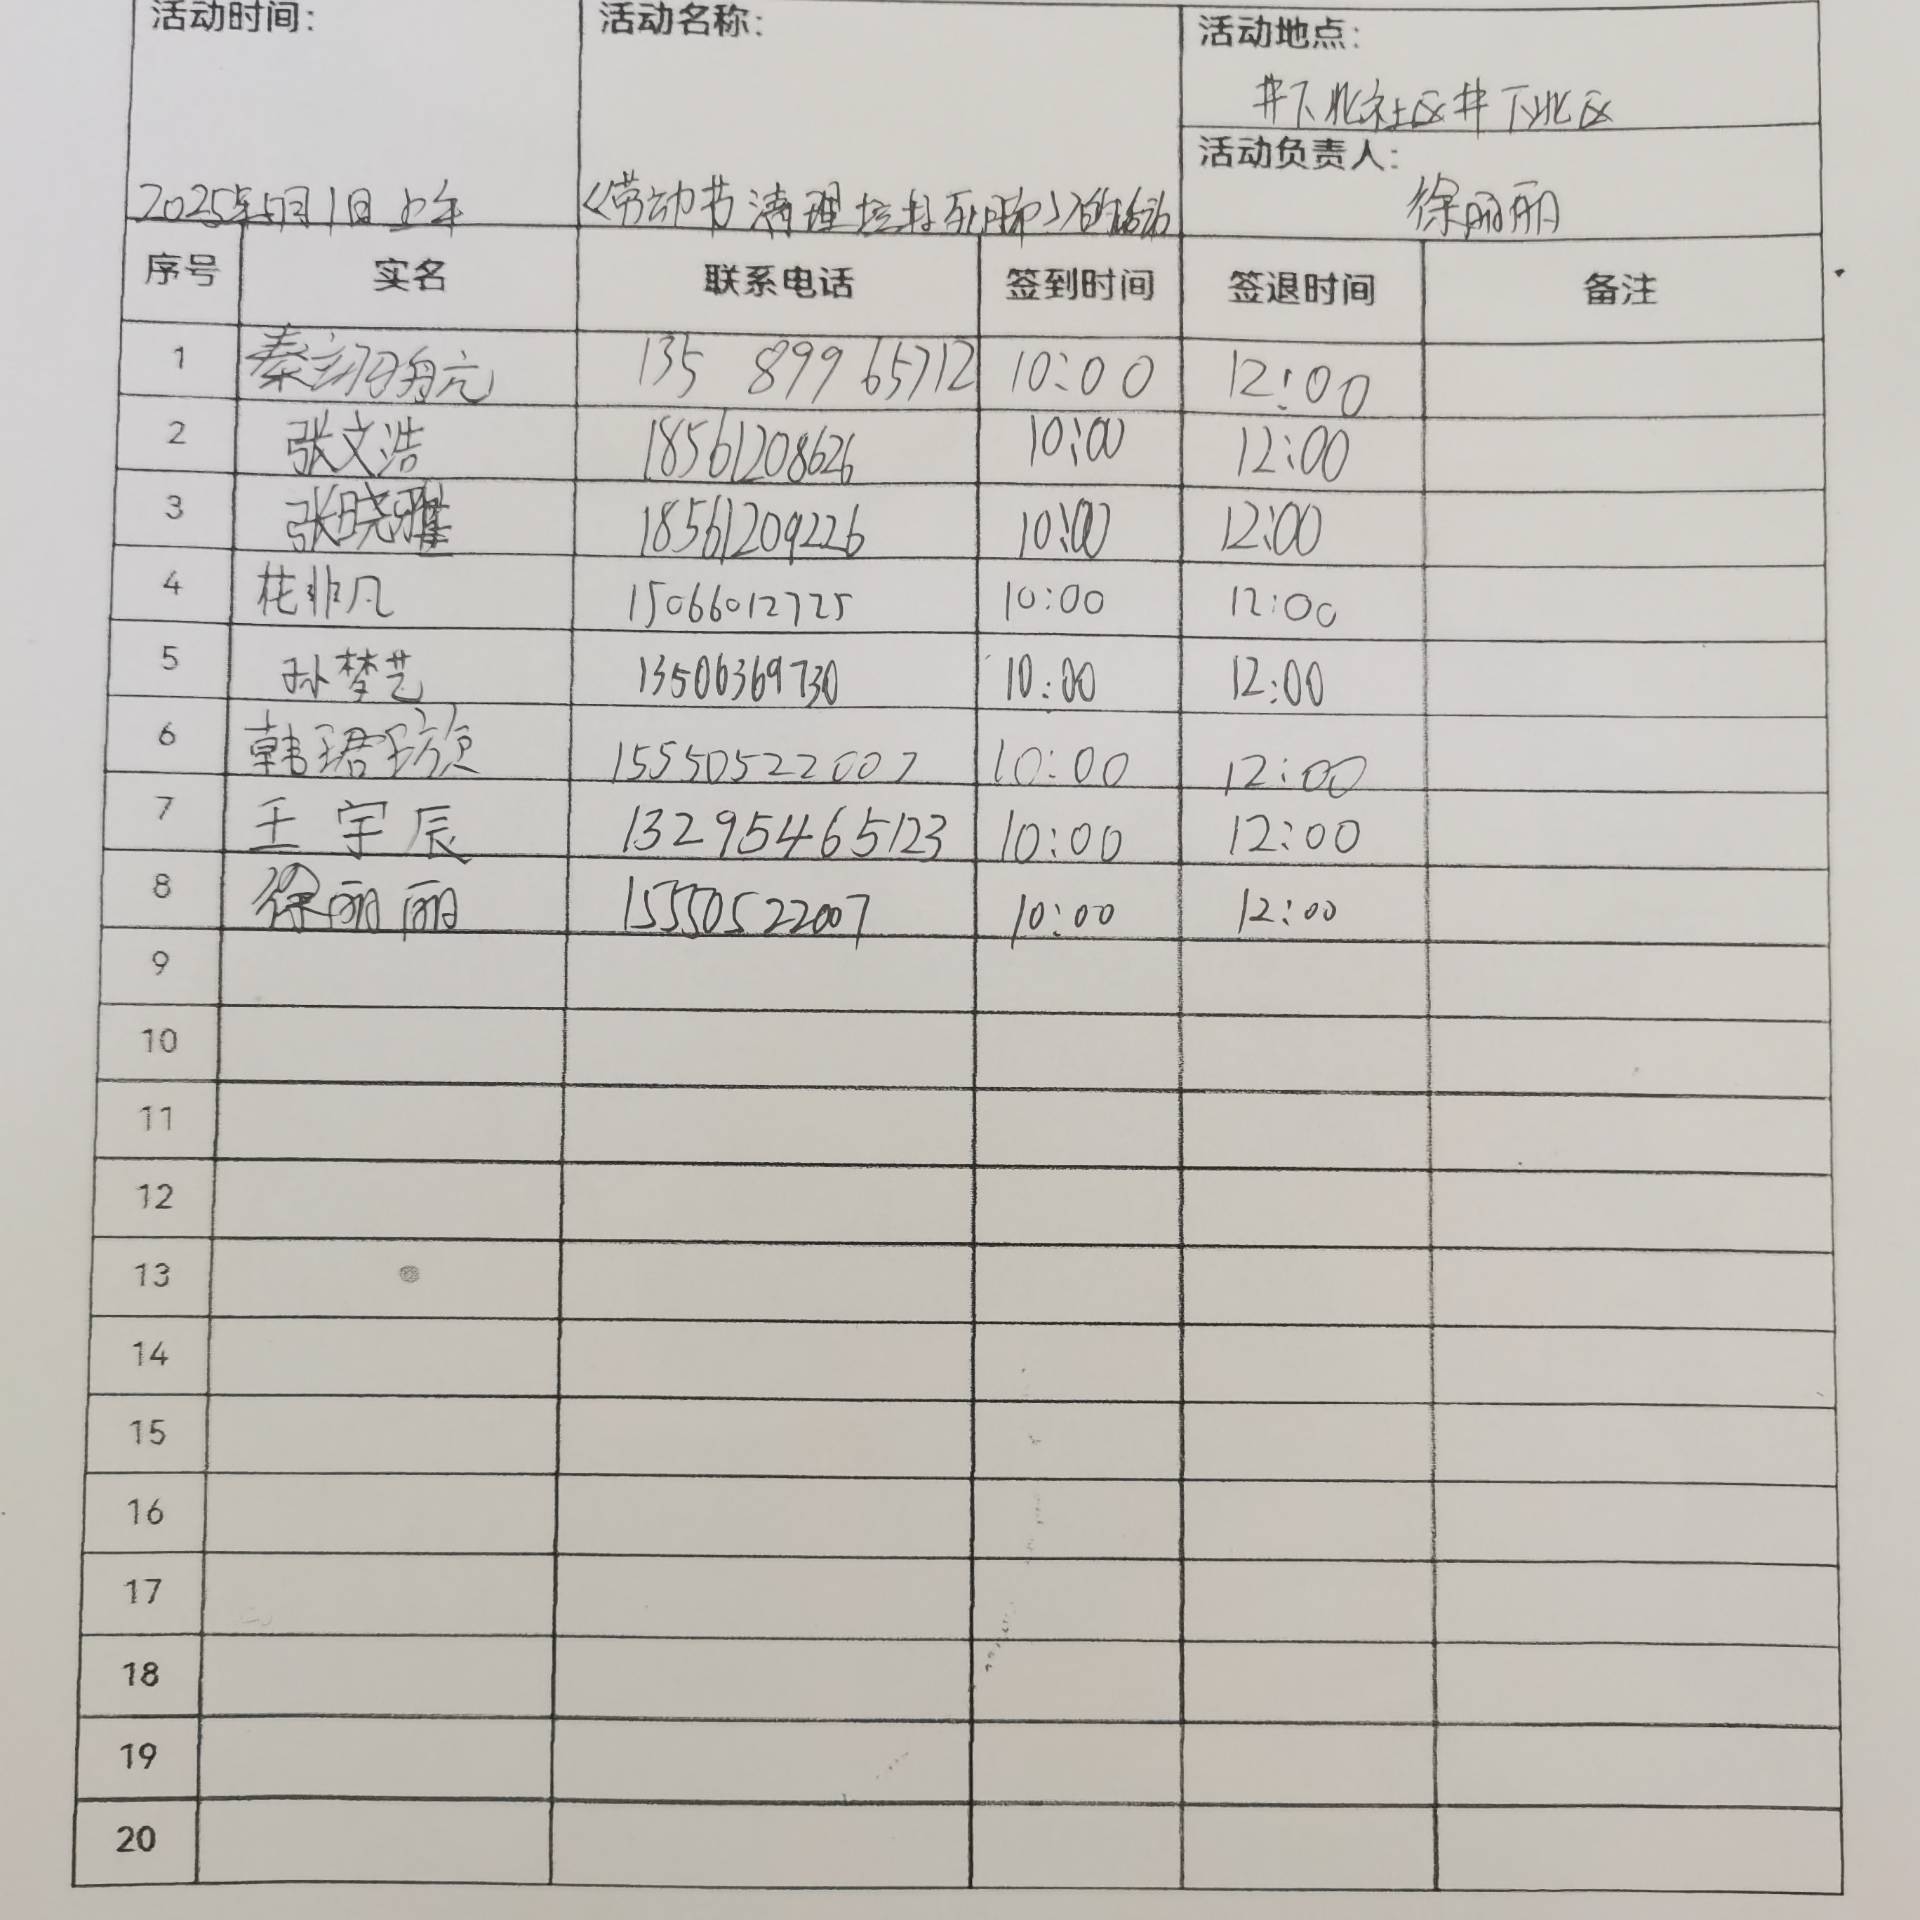 活动时间: 活动名称: 活动地点:
井下北社区井下北区
活动负责人:
2025年5月1日上午 《劳动节清理垃圾死角》的活动 徐丽丽
序号 实名 联系电话 签到时间 签退时间 备注
1 秦 135 89965712 10:00 12:00
2 张文浩 18561208626 10:00 12:00
3 张晓雅 18561209226 10:00 12:00
4 非凡 15066012725 10:00 12:00
5 孙梦艺 13506369730 10:00 12:00
6 韩珺 15550522007 10:00 12:00
7 王宇辰 13295465123 10:00 12:00
8 徐丽丽 15550522007 10:00 12:00
9
10
11
12
13
14
15
16
17
18
19
20